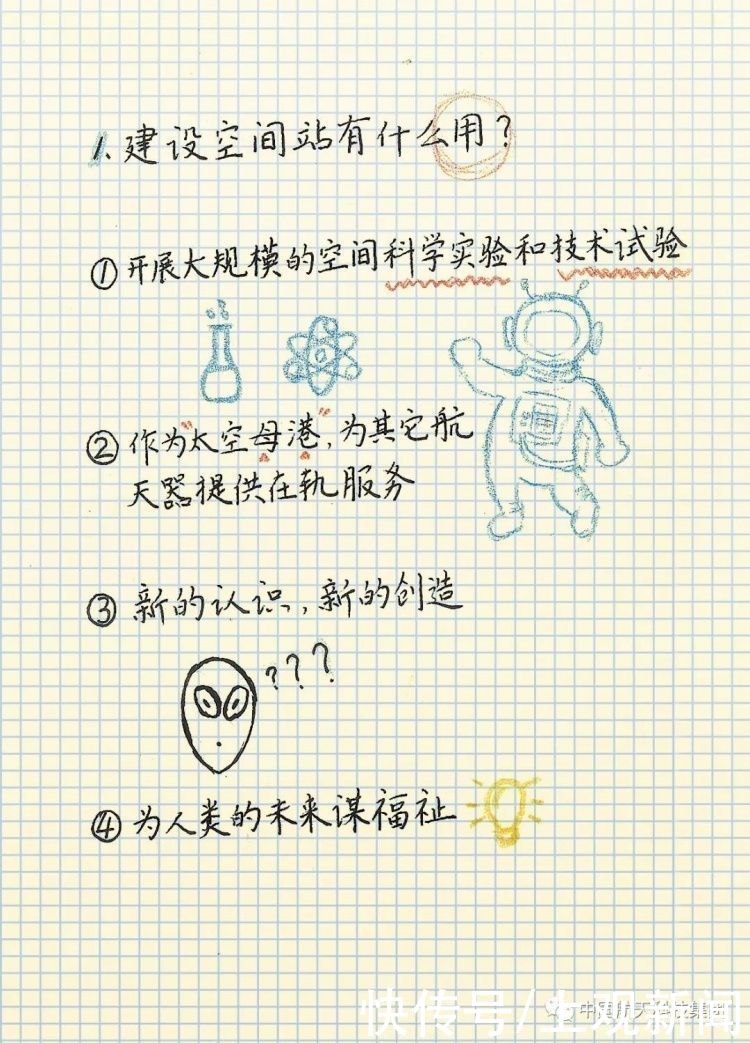 1.建设空间站有什么用?
①开展大规模的空间科学实验和技术试验
②作为"太空母港",为其它航
天器提供在轨服务
③新的认识,新的创造
???
④为人类的未来谋福祉
中国航天科技集团
快传号/上观新闻